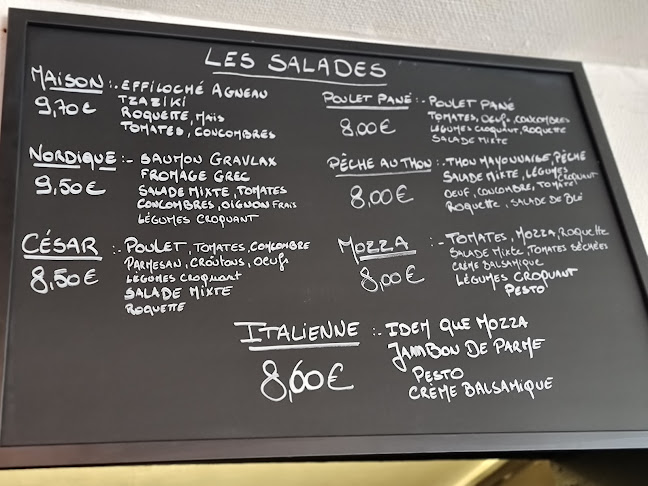 LES SALADES
MAISON :- EFFILOCHÉ AGNEAU
9,70€ TZAZIKI
ROQUETTE, MAÏS
TOMATES, CONCOMBRES
NORDIQUE :- SAUMON GRAVLAX
9,50€ FROMAGE GREC
SALADE MIXTE, TOMATES
CONCOMBRES, OIGNON FRAIS
LÉGUMES CROQUANT
CÉSAR :- POULET, TOMATES, CONCOMBRE
8,50€ PARMESAN, CROÛTONS, OEUFS
LÉGUMES CROQUANT
SALADE MIXTE
ROQUETTE
POULET PANÉ :- POULET PANÉ
8,00€ TOMATES, OEUFS, CONCOMBRES
LÉGUMES CROQUANT, ROQUETTE
SALADE MIXTE
PÊCHE AU THON :- THON MAYONNAISE, PÊCHE
8,00€ SALADE MIXTE, LÉGUMES CROQUANT
OEUF, CONCOMBRE, TOMATE
ROQUETTE, SALADE DE BLÉ
MOZZA :- TOMATES, MOZZA, ROQUETTE
8,00€ SALADE MIXTE, TOMATES SÉCHÉES
CRÈME BALSAMIQUE
LÉGUMES CROQUANT
PESTO
ITALIENNE :- IDEM QUE MOZZA
8,60€ JAMBON DE PARME
PESTO
CRÈME BALSAMIQUE